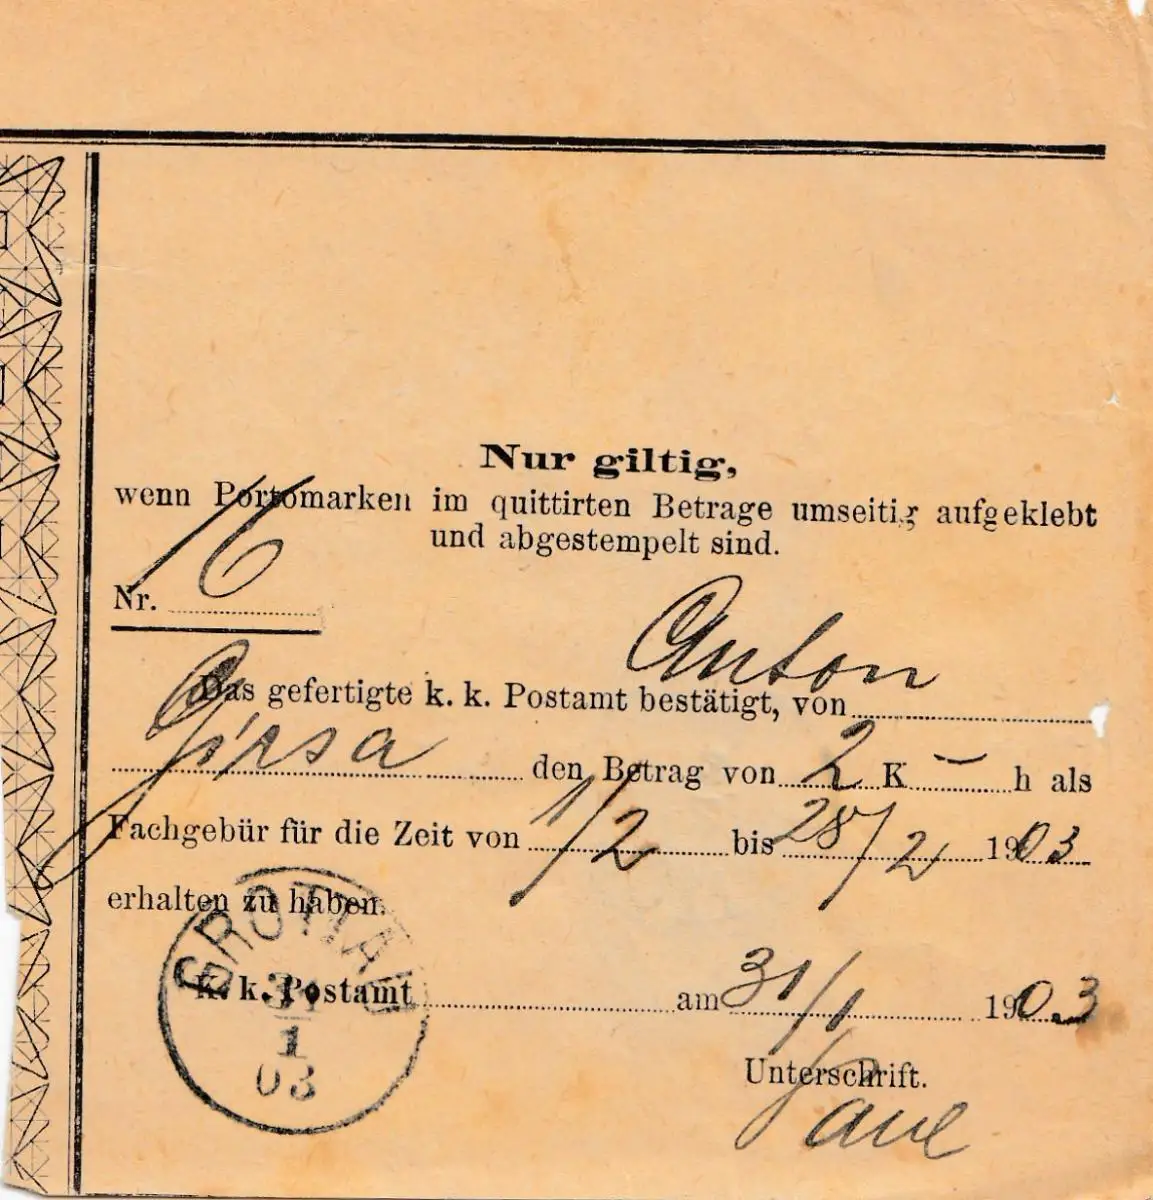 Nur giltig,
wenn Portomarken im quittirten Betrage umseitig aufgeklebt
und abgestempelt sind.
Nr. 16
Das gefertigte k. k. Postamt bestätigt, von Anton
Girsa den Betrag von 2 K — h als
Fachgebür für die Zeit von 1/2 bis 28/2 1903
erhalten zu haben.
GROTTAU
31
1
03
K. k. Postamt am 31/1 1903
Unterschrift.